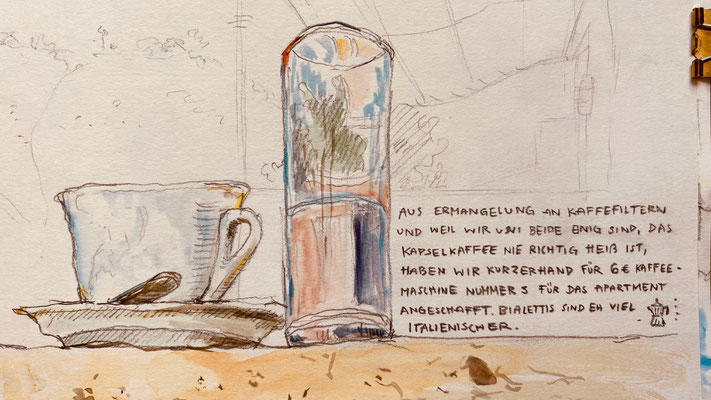 AUS ERMANGELUNG AN KAFFEFILTERN
UND WEIL WIR UNS BEIDE EINIG SIND, DAS
KAPSELKAFFEE NIE RICHTIG HEIß IST,
HABEN WIR KURZERHAND FÜR 6€ KAFFEE-
MASCHINE NUMMER 3 FÜR DAS APARTMENT
ANGESCHAFFT. BIALETTIS SIND EH VIEL
ITALIENISCHER.